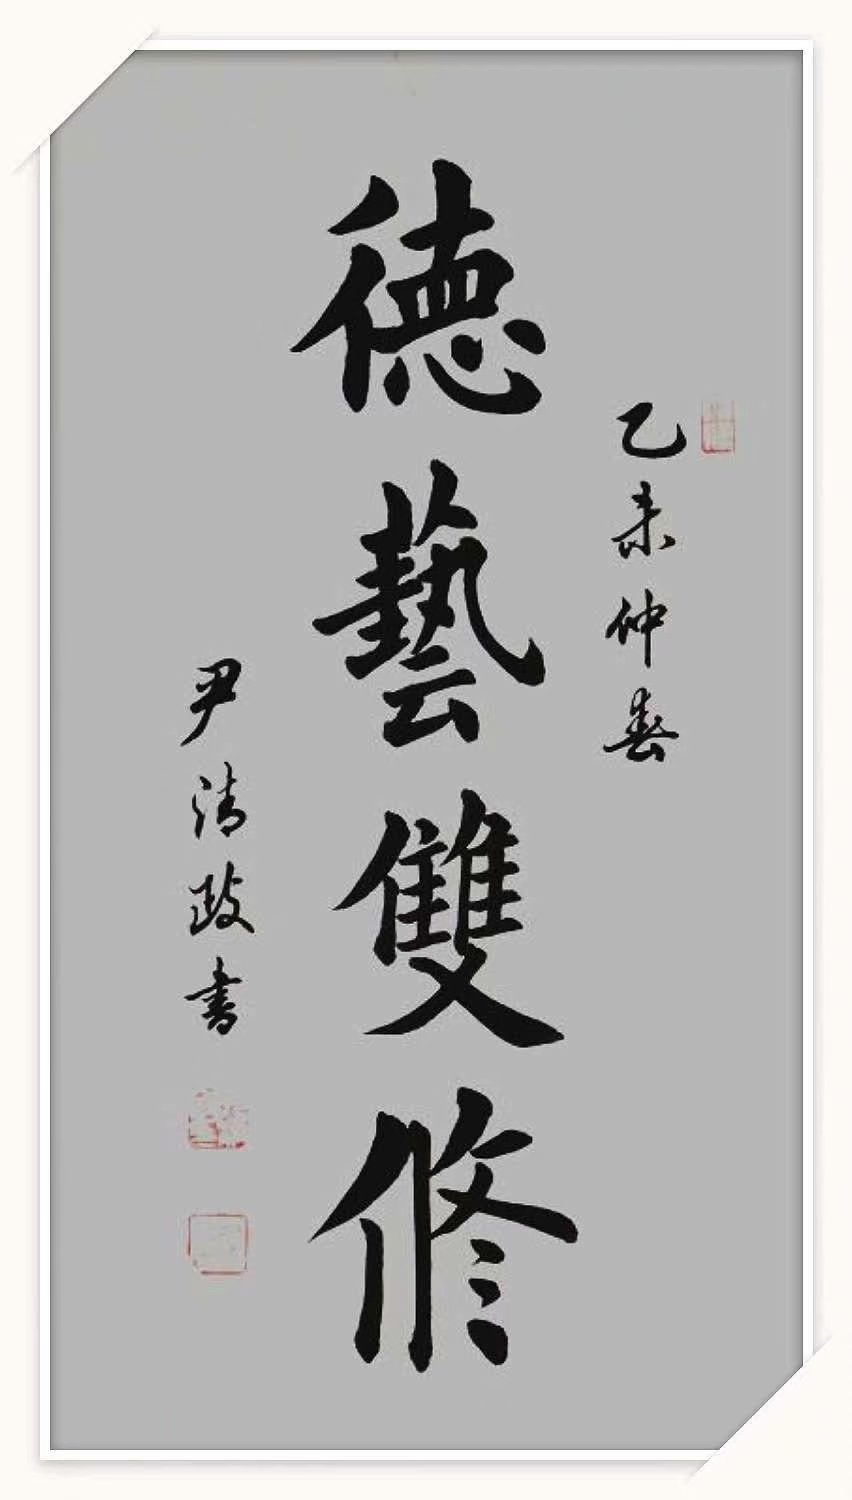 乙未仲春
德藝雙修
尹清政書